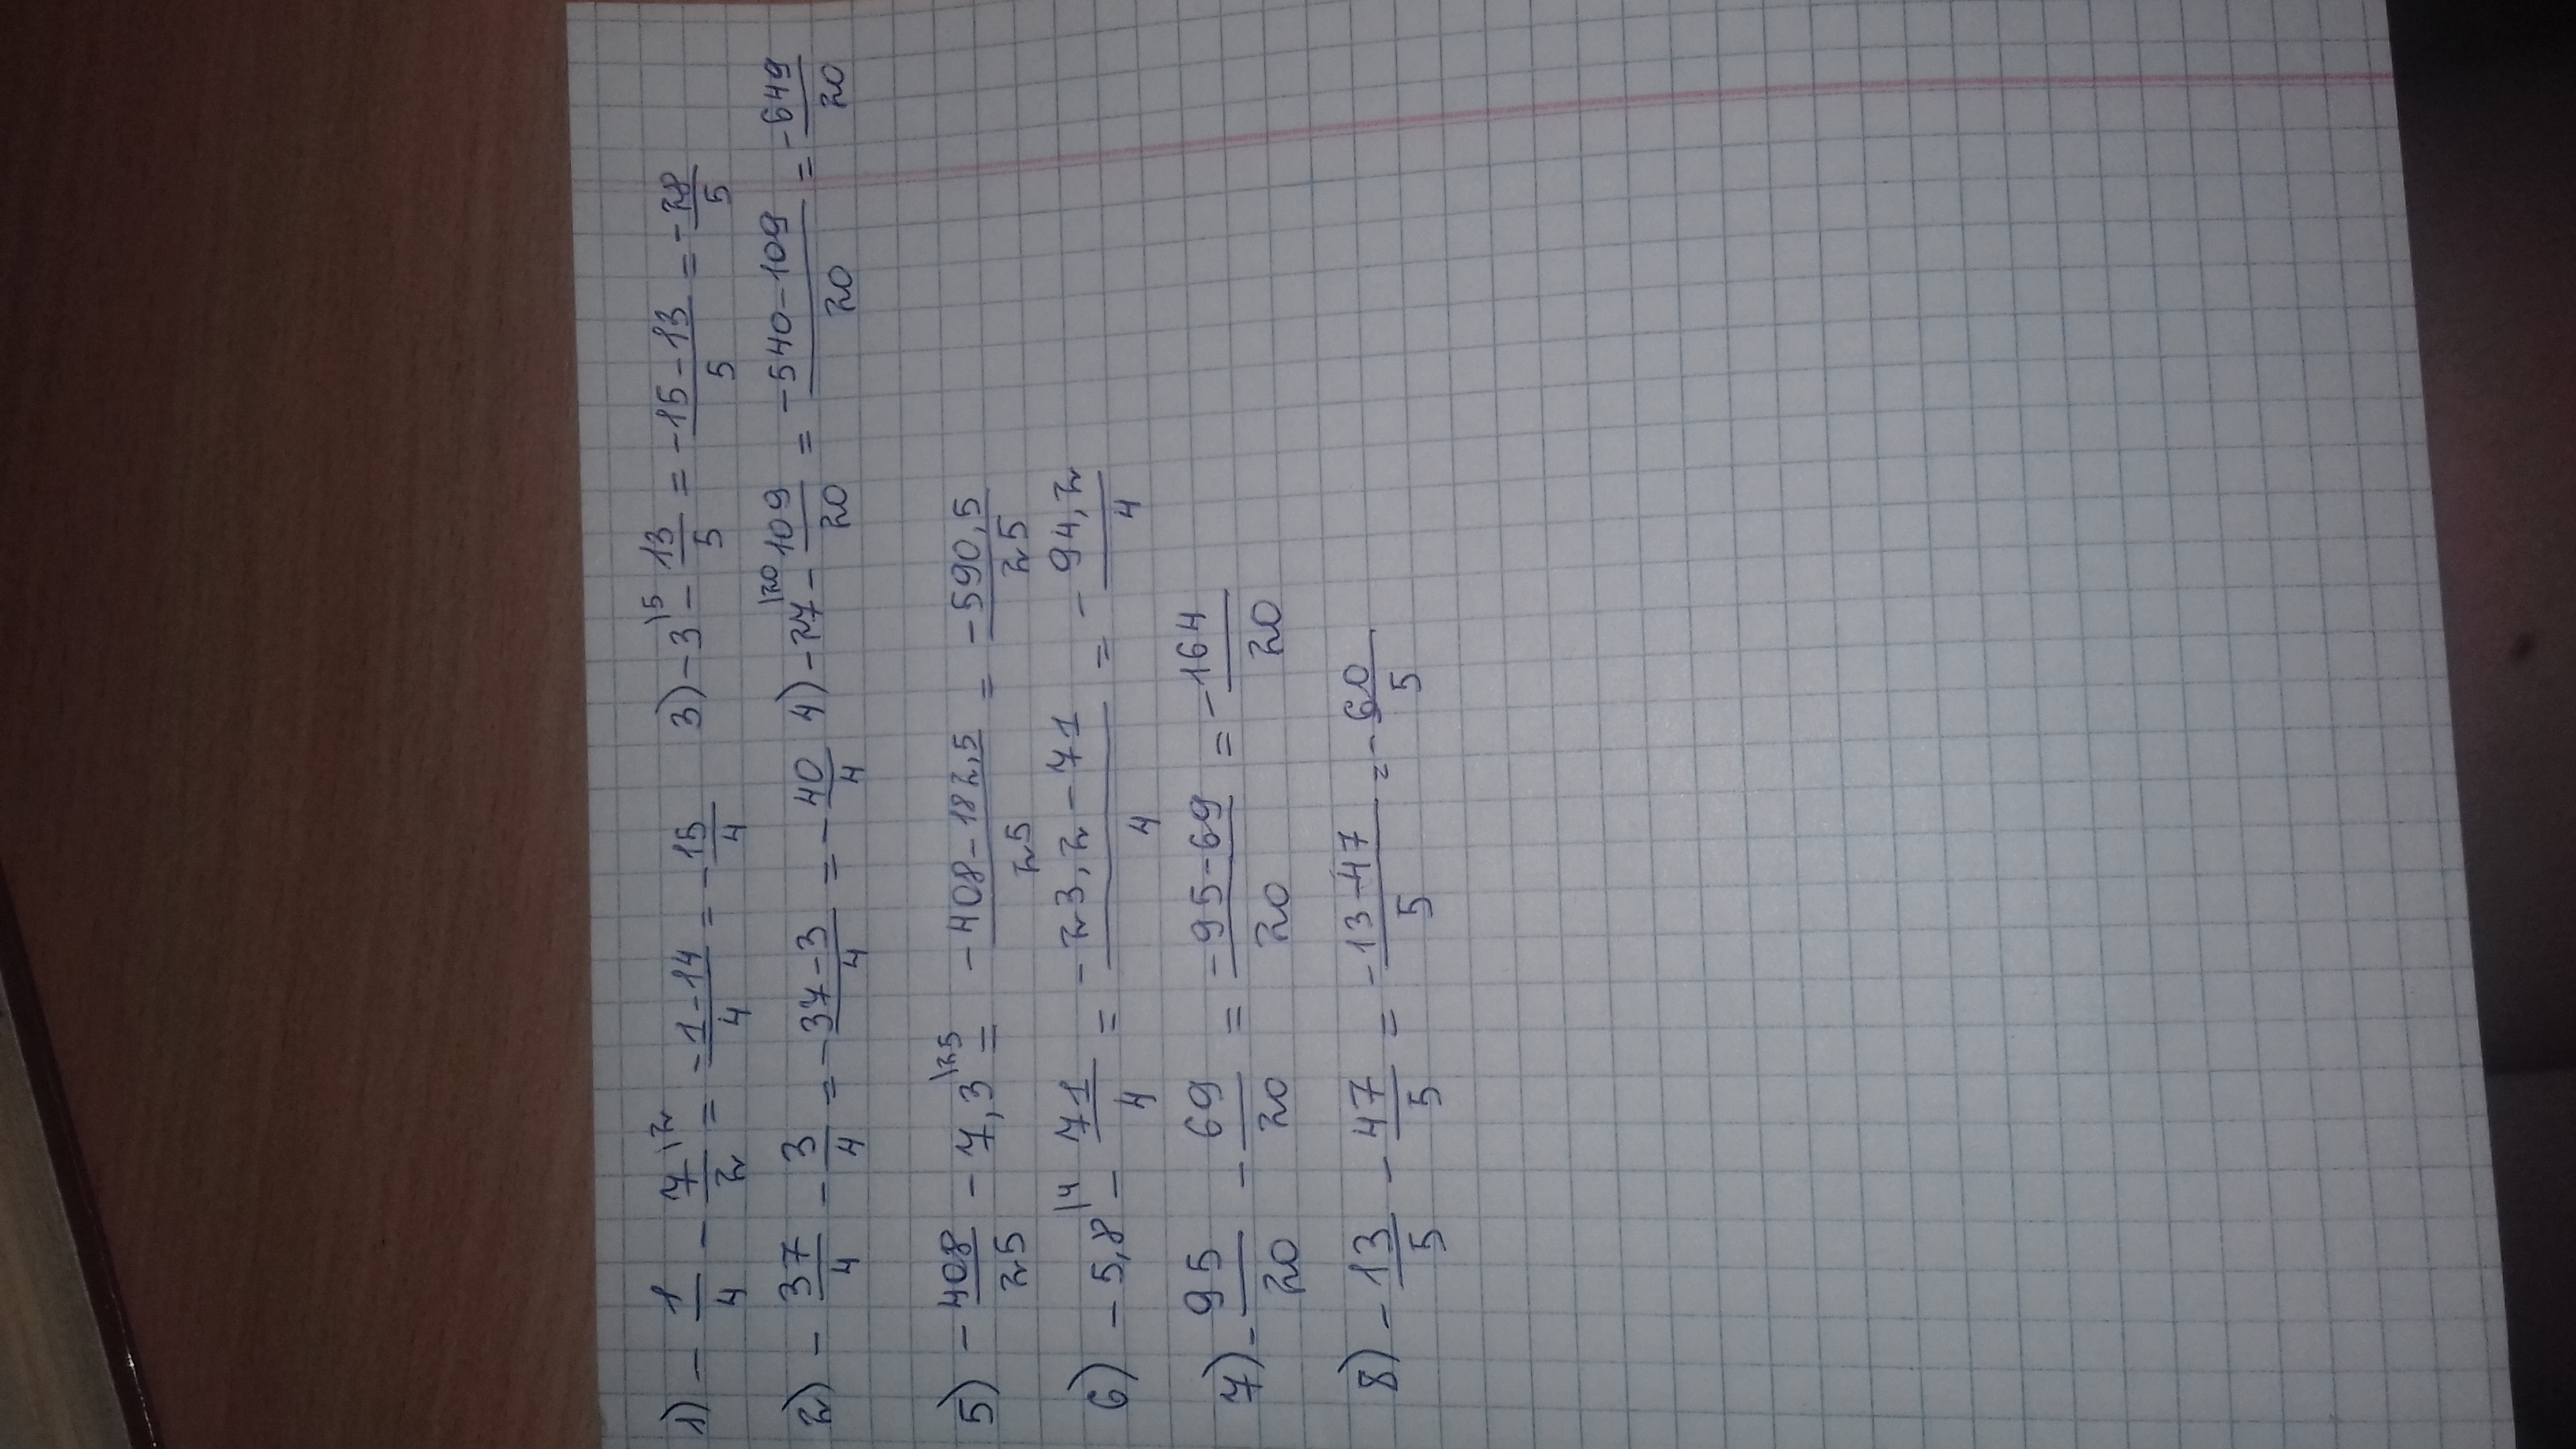 1) - 1/4 - 7/2 \2 = -1-14/4 = - 15/4 3) -3 \5 - 13/5 = -15-13/5 = -28/5
2) - 37/4 - 3/4 = - 37-3/4 = - 40/4 4) -27 \20 - 109/20 = -540-109/20 = -649/20
5) - 408/25 - 7,3 \25 = -408-182,5/25 = -590,5/25
6) - 5,8 \4 - 71/4 = -23,2-71/4 = - 94,2/4
7) - 95/20 - 69/20 = -95-69/20 = -164/20
8) - 13/5 - 47/5 = -13-47/5 = - 60/5